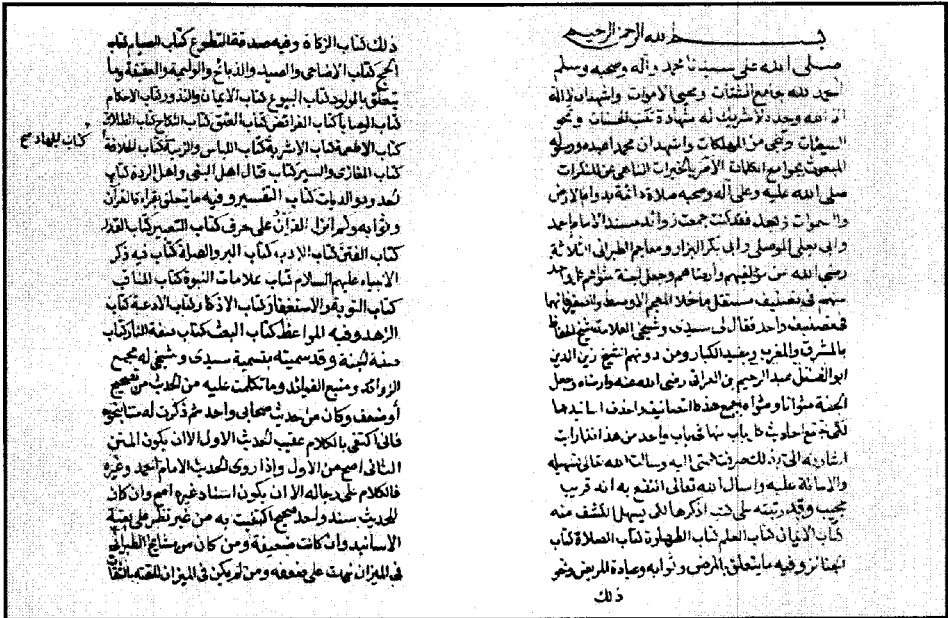 بسم الله الرحمن الرحيم
صلى الله على سيدنا محمد وآله وصحبه وسلم
الحمد لله جامع الشتات ومحيي الاموات واشهد ان لا اله
الا الله وحده لا شريك له شهادة تكتب الحسنات وتمحو
السيئات وتنجي من المهلكات واشهد ان محمدا عبده ورسوله
المبعوث بجوامع الكلمات الآمر بالخيرات الناهي عن المنكرات
صلى الله عليه وعلى آله وصحبه صلاة دائمة بدوام الارض
والسموات وبعد فقد كنت جمعت زوائد مسند الامام احمد
وابي يعلى الموصلي وابي بكر البزار ومعاجم الطبراني الثلاثة
رضي الله عن مؤلفيهم وارضاهم وجعل الجنة مثواهم كل واحد
منهم في تصنيف مستقل ما خلا المعجم الاوسط والصغير فانهما
في تصنيف واحد فقال لي سيدي وشيخي العلامة شيخ الحفاظ
بالمشرق والمغرب ومفيد الكبار ومن دونهم الشيخ زين الدين
ابو الفضل عبد الرحيم بن العراقي رضي الله عنه وارضاه وجعل
الجنة مثوانا ومثواه اجمع هذه التصانيف واحذف اسانيدها
لكي تجتمع احاديث كل باب منها في باب واحد من هذا
اشارته الي بذلك صرفت همتي اليه وسالت الله تعالى تسهيله
والاعانة عليه واسأل الله تعالى النفع به انه قريب
مجيب وقد رتبته على كتب اذكرها لكي يسهل الكشف منه
كتاب الايمان كتاب العلم كتاب الطهارة كتاب الصلاة كتاب
الجنائز وفيه ما يتعلق بالمرض وثوابه وعيادة المريض ونحو
ذلك
ذلك كتاب الزكاة وفيه صدقة التطوع كتاب الصيام كتاب
الحج كتاب الاضاحي والصيد والذبائح والوليمة والعقيقة وما
يتعلق بالمولود كتاب البيوع كتاب الايمان والنذور كتاب الاحكام
كتاب الوصايا كتاب الفرائض كتاب العتق كتاب النكاح كتاب الطلاق
كتاب الاطعمة كتاب الاشربة كتاب اللباس والزينة كتاب الخلافة
كتاب الجهاد صح
كتاب المغازي والسير كتاب قتال اهل البغي واهل الردة كتاب
الحدود والديات كتاب التفسير وفيه ما يتعلق بقراءة القرآن
وثوابه وكم انزل القرآن على حرف كتاب التعبير كتاب القدر
كتاب الفتن كتاب الادب كتاب البر والصلة كتاب فيه ذكر
الانبياء عليهم السلام كتاب علامات النبوة كتاب المناقب
كتاب التوبة والاستغفار كتاب الاذكار كتاب الادعية كتاب
الزهد وفيه المواعظ كتاب البعث كتاب صفة النار كتاب
صفة الجنة وقد سميته بتسمية سيدي وشيخي له مجمع
الزوائد ومنبع الفوائد وما تكلمت عليه من الحديث من تصحيح
أو ضعف وكان من حديث صحابي واحد ثم ذكرت له متنا بنحوه
فاني اكتفي بالكلام عقيب الحديث الاول الا ان يكون المتن
الثاني اصح من الأول وإذا روى الحديث الامام احمد وغيره
فالكلام على رجاله الا ان يكون اسناد غيره اصح وان كان
للحديث سند واحد صحيح اكتفيت به من غير نظر على بقية
الاسانيد وان كانت ضعيفة ومن كان من مشايخ الطبراني
في الميزان نبهت على ضعفه ومن لم يكن في الميزان الحقته بالثقات